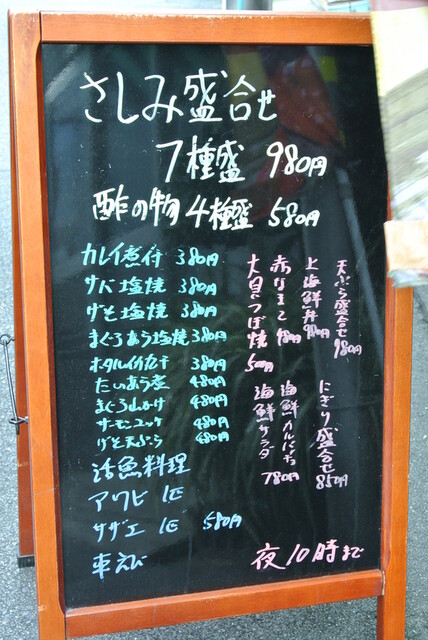 さしみ盛合せ
7種盛 980円
酢の物 4種盛 580円
カレイ煮付 380円
サバ塩焼 380円
げそ塩焼 380円
まぐろあら塩焼 380円
ホタルイカ 380円
たいあら煮 480円
まぐろ山かけ 480円
サーモンユッケ 480円
げそ天ぷら 480円
活魚料理
アワビ 1ヶ
サザエ 1ヶ 580円
車えび
天ぷら盛合せ 980円
上海鮮丼 980円
赤なまこ
大目つぼ焼 500円
にぎり盛合せ 850円
海鮮カルパッチョ 780円
海鮮サラダ
夜10時まで